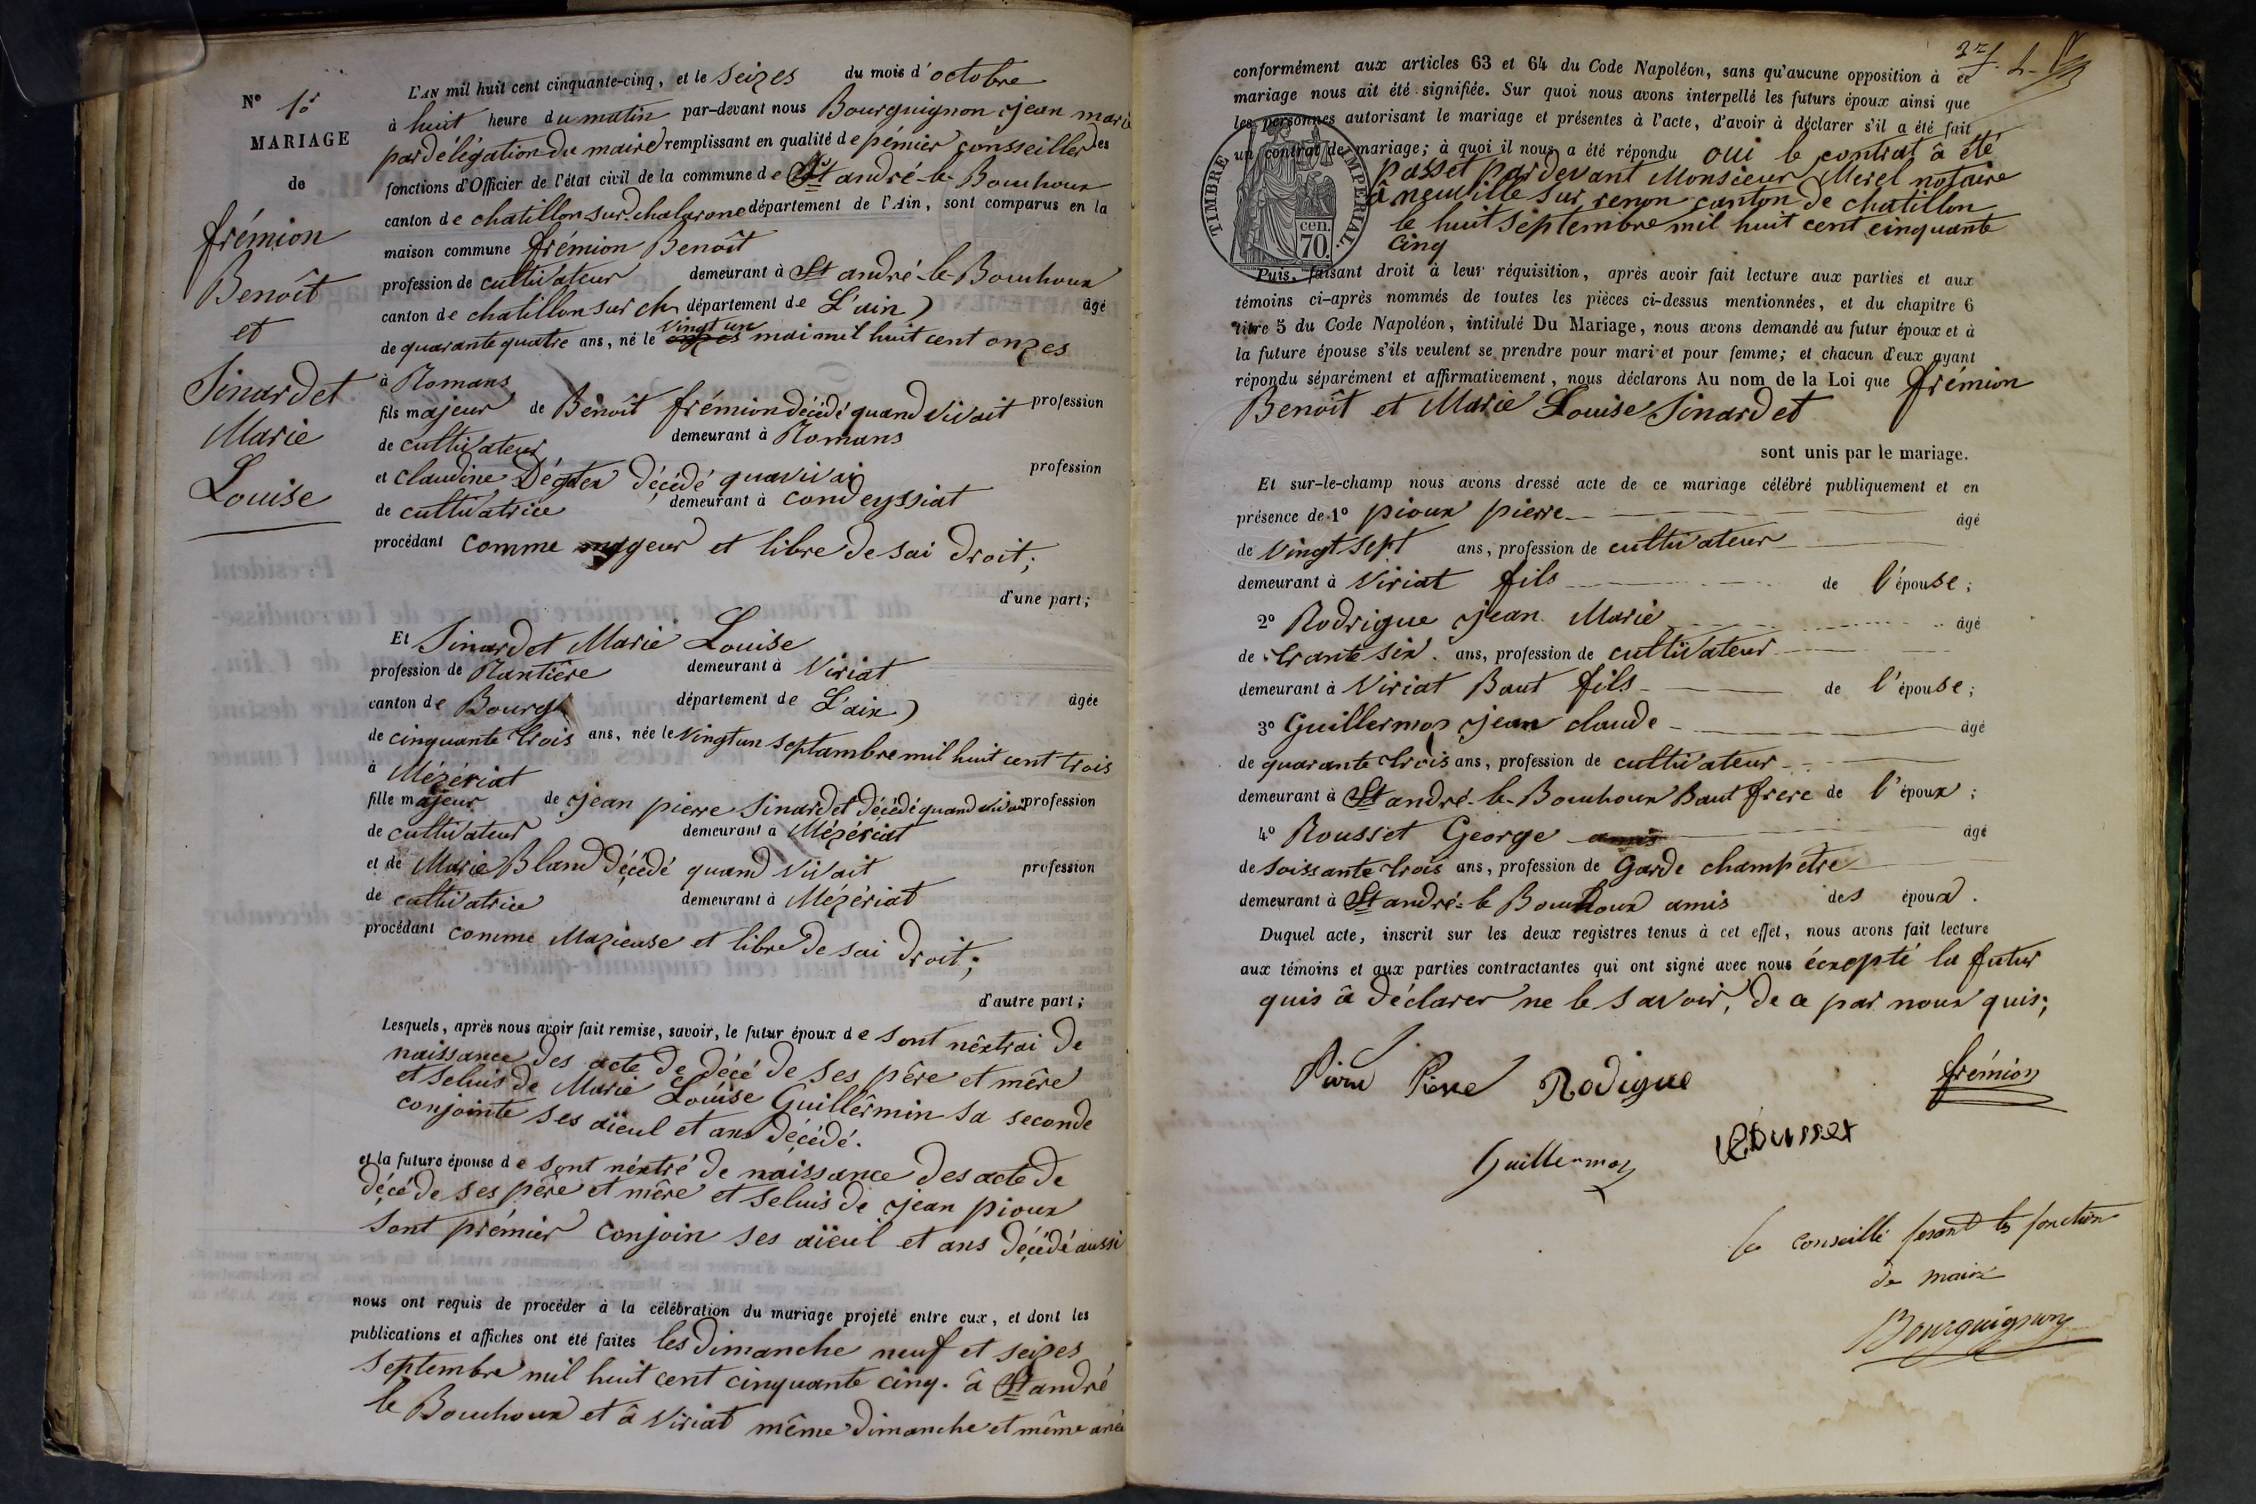 N° 10
MARIAGE
de
frémion
Benoît
et
Sinardet
Marie
Louise
L'AN mil huit cent cinquante-cinq, et le seizes du mois d'octobre
à huit heure du matin par-devant nous Bourguignon jean marie
par délégation du maire remplissant en qualité de pémier consseiller les
fonctions d'Officier de l'état civil de la commune de St andré-le-Bouchoux
canton de chatillon sur chalarone département de l'Ain, sont comparus en la
maison commune frémion Benoît
profession de cultivateur demeurant à St andré-le-Bouchoux
canton de chatillon sur ch département de L'ain) âgé
de quarante quatre ans, né le vingt un mai mil huit cent onzes
à Romans
fils majeur de Benoît frémion décédé quand vivait profession
de cultivateur demeurant à Romans
et claudine Dégter décédé quavivai profession
de cultivatrice demeurant à condeyssiat
procédant comme majeur et libre de sai droit;
d'une part;
Et Sinardet Marie Louise
profession de Rantière demeurant à Viriat
canton de Bourg département de L'ain) âgée
de cinquante trois ans, née le vingt un septambre mil huit cent trois
à Mézériat
fille majeur de jean pierre Sinardet décédé quand vivai profession
de cultivateur demeurant à Mézériat
et de Marie Bland décédé quand vivait profession
de cultivatrice demeurant à Mézériat
procédant comme Mazieuse et libre de sai droit;
d'autre part;
Lesquels, après nous avoir fait remise, savoir, le futur époux de sont néxtrai de
naissance des acte de décé de ses père et mère
et seluis de Marie Louise Guillérmin sa seconde
conjointe ses aïeul et ans décédé.
et la future épouse de sont néxtré de naissance des acte de
décé de ses père et mère et seluis de jean pioux
sont prémier conjoin ses aïeul et ans décédé aussi
nous ont requis de procéder à la célébration du mariage projeté entre eux, et dont les
publications et affiches ont été faites les dimanche neuf et seizes
septembre mil huit cent cinquante cinq. à St andré
le Bouchoux et à Viriat même dimanche et même ané
conformément aux articles 63 et 64 du Code Napoléon, sans qu'aucune opposition à ce
mariage nous ait été signifiée. Sur quoi nous avons interpellé les futurs époux ainsi que
les personnes autorisant le mariage et présentes à l'acte, d'avoir à déclarer s'il a été fait
un contrat de mariage; à quoi il nous a été répondu oui le contrat à été
passet par devant Monsieur Merel notaire
à neuville sur renon canton de chatillon
le huit septembre mil huit cent cinquante
cinq
TIMBRE IMPERIAL.
cen.
70.
Puis, faisant droit à leur réquisition, après avoir fait lecture aux parties et aux
témoins ci-après nommés de toutes les pièces ci-dessus mentionnées, et du chapitre 6
titre 5 du Code Napoléon, intitulé Du Mariage, nous avons demandé au futur époux et à
la future épouse s'ils veulent se prendre pour mari et pour femme; et chacun d'eux ayant
répondu séparément et affirmativement, nous déclarons Au nom de la Loi que frémion
Benoît et Marie Louise Sinardet
sont unis par le mariage.
Et sur-le-champ nous avons dressé acte de ce mariage célébré publiquement et en
présence de 1° pioux pierre âgé
de vingt sept ans, profession de cultivateur
demeurant à Viriat fils de l'épouse;
2° Rodrigue jean Marie âgé
de trante six ans, profession de cultivateur
demeurant à Viriat Baut fils de l'épouse;
3° Guillermoz jean claude âgé
de quarante trois ans, profession de cultivateur
demeurant à St andré-le-Bouchoux Baut frere de l'époux;
4° Rousset George amis âgé
de soissante trois ans, profession de Garde champétre
demeurant à St andré-le Bouchoux amis des époux.
Duquel acte, inscrit sur les deux registres tenus à cet effet, nous avons fait lecture
aux témoins et aux parties contractantes qui ont signé avec nous écxepté la futur
quis à déclarer ne le savoir, de ce par nous quis;
Pioux Pierre Rodigue frémion
Guillermoz Rousset
le conseillé fesant les fonction
de maire
Bourguignon